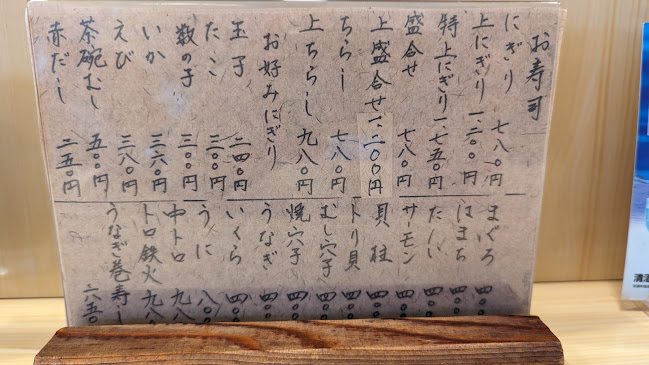 お寿司
にぎり 七八〇円
上にぎり 一、二〇〇円
特上にぎり 一、七五〇円
盛合せ 七八〇円
上盛合せ 一、二〇〇円
ちらし 七八〇円
上ちらし 九八〇円
お好みにぎり
玉子 二四〇円
たこ 三〇〇円
数の子 三〇〇円
いか 三六〇円
えび 三八〇円
茶碗むし 五〇〇円
赤だし 二五〇円
まぐろ 四〇〇
はまち 四〇〇
たい 四〇〇
サーモン 四〇〇
貝柱 四〇〇
トリ貝 四〇〇
むし穴子 四〇〇
焼穴子 四〇〇
うなぎ 四〇〇
いくら 四〇〇
うに 八〇〇
中トロ 九八
トロ鉄火 九八
うなぎ巻寿し 二八五〇
清酒